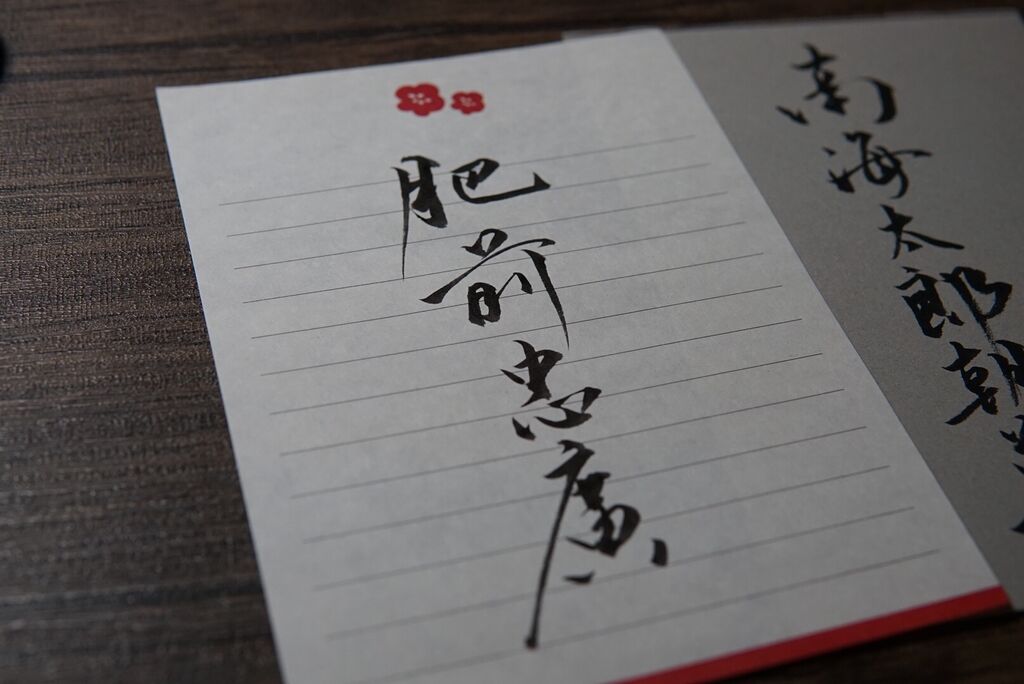 南海太郎朝
肥前忠廣